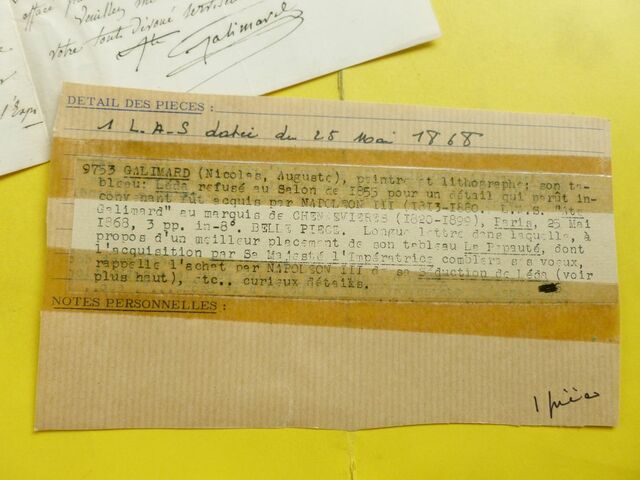 effacé
Veuillez
votre tout dévoué serviteur
Ate Galimard
l'Expo
DETAIL DES PIECES :
1 L.A.S datée du 25 Mai 1868
9753 GALIMARD (Nicolas, Auguste), peintre et lithographe; son ta-
bleau: Léda refusé au Salon de 1855 pour un détail qui parut in-
convenant fut acquis par NAPOLEON III (1813-1880 L.A.S. "Ate
Galimard" au marquis de CHENNEVIERES (1820-1899), Paris, 25 Mai
1868, 3 pp. in-8°. BELLE PIECE. Longue lettre dans laquelle, à
propos d'un meilleur placement de son tableau La Papauté, dont
l'acquisition par Sa Majesté l'Impératrice comblera ses voeux,
rappelle l'achat par NAPOLEON III de sa Séduction de Léda (voir
plus haut), etc.. curieux détails.
NOTES PERSONNELLES :
1 pièces